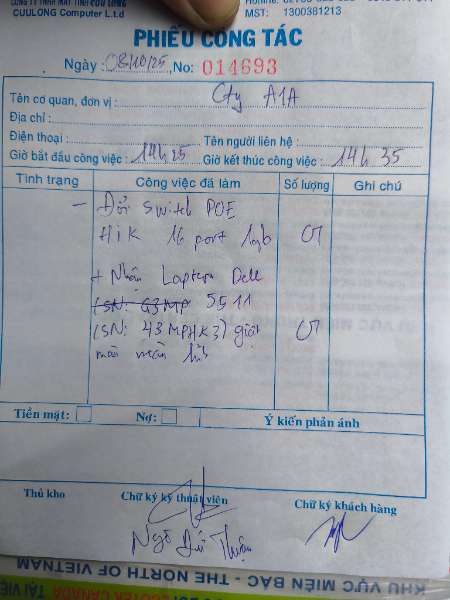 CÔNG TY TNHH MÁY TÍNH CỬU LONG
CUULONG Computer L.t.d
MST: 1300381213
PHIẾU CÔNG TÁC
Ngày : 08/10/25 ,No: 014693
Tên cơ quan, đơn vị : Cty A1A
Địa chỉ :
Điện thoại : Tên người liên hệ :
Giờ bắt đầu công việc : 14h 25 Giờ kết thúc công việc : 14h 35
Tình trạng Công việc đã làm Số lượng Ghi chú
– Đổi Switch POE
HiK 16 port 1gb 01
+ Nhận Laptop Dell
(SN: G3MP 5511
(SN: 43MPHK3) giật
màn hình 01
Tiền mặt: Nợ: Ý kiến phản ánh
Thủ kho Chữ ký kỹ thuật viên Chữ ký khách hàng
Ngô Đức Thuận
KHU VỰC MIỀN BẮC - THE NORTH OF VIETNAM